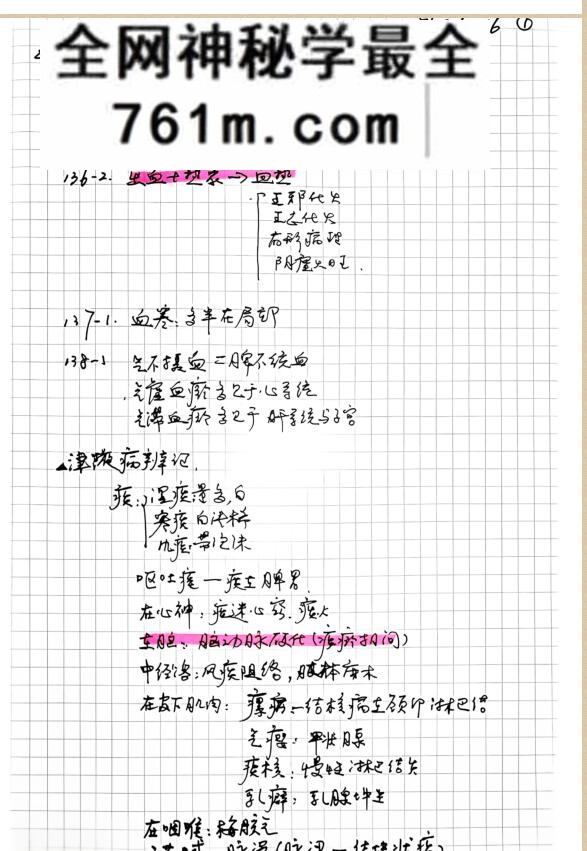 6 ①
全网神秘学最全
761m.com
136-2. 出血+热象→血热
五邪化火
五志化火
有形病理
阴虚火旺.
137-1. 血寒:多半在局部
138-1 气不摄血=脾不统血
气虚血瘀多见于心系统
气滞血瘀多见于肝系统与子宫
▲津液病辨证.
痰:湿痰量多,白
寒痰白清稀
风痰:带泡沫
呕吐痰—痰在脾胃.
在心神:痰迷心窍.痰火
在脑:脑动脉硬化(痰瘀相间)
中经络:风痰阻络,肢体麻木
在皮下肌肉:瘰疬—结核病在颈部淋巴结
气瘿:甲状腺
痰核:慢性淋巴结炎
乳癖:乳腺增生
在咽喉:梅核气